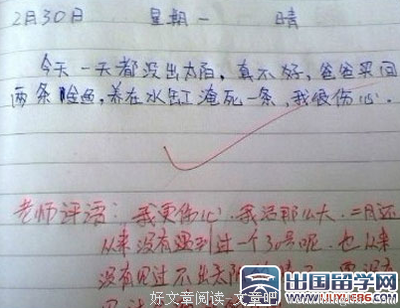 2月30日 星期一 晴
今天一天都没出太阳,真不好,爸爸买回
两条金鱼,养在水缸淹死一条,我很伤心.
老师评语:我更伤心.我活那么大.二月还
从来没有遇到过一个30号呢.也从来
没有见过不出太阳
好文章阅读-文章吧
出国留学网
WWW.LIUXUE86.COM